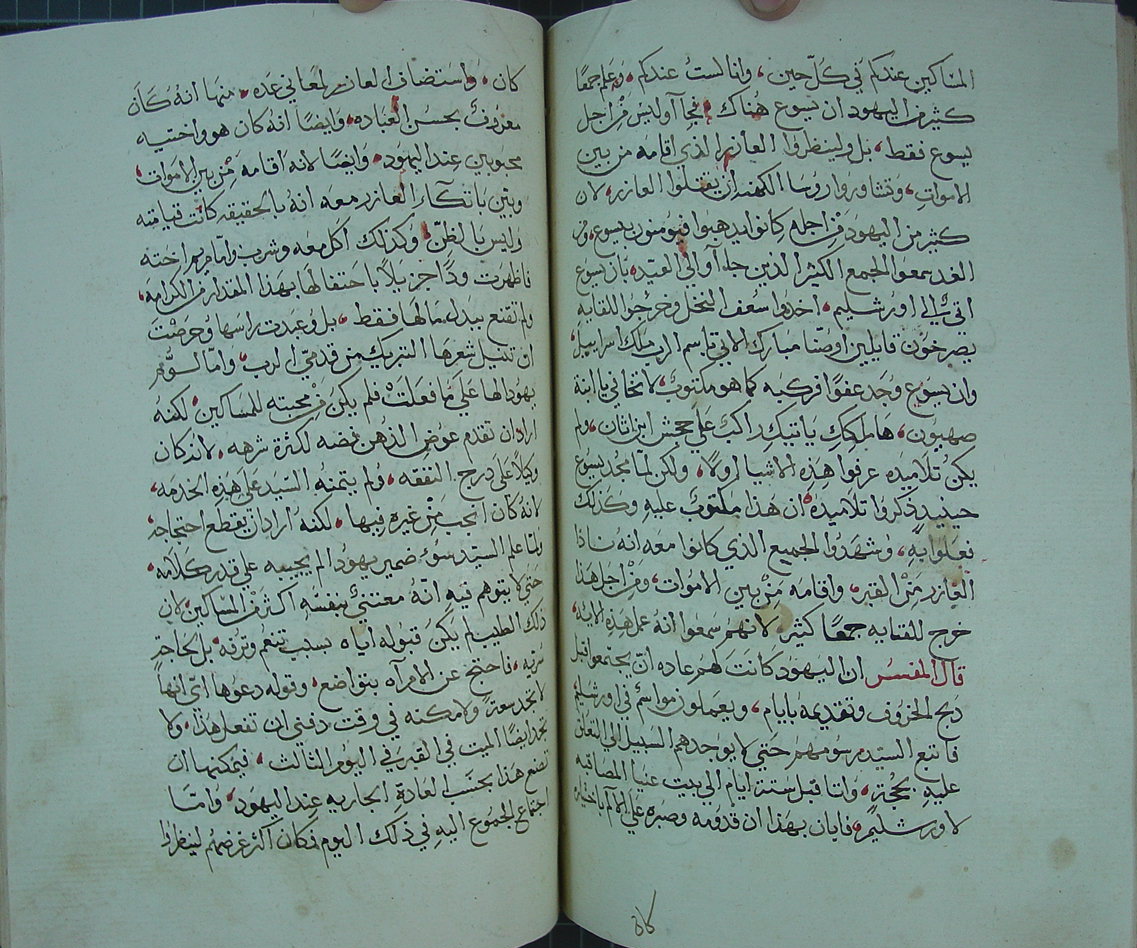 المساكين عندكم في كل حين، وانا لست عندكم، وعلم جمعًا
كثير من اليهود ان يسوع هناك فجاآو ليس من اجل
يسوع فقط، بل ولينظروا العازر الذي اقامه من بين
الاموات، وتشاوروا روسا الكهنه ان يقتلوا العازر، لان
كثير من اليهود من اجله كانوا يدهبوا فيومنون بيسوع، ومن
الغد سمعوا الجمع الكثير الذين جاءآو الي العيد، بان يسوع
اتي الي اورشليم، اخدوا سعف النخل وخرجوا للقايه
يصرخون قايلين اوصنا مبارك الاتي باسم الرب ملك اسراييل
وان يسوع وجد عفوًا فركبه كما هو مكتوب، لا تخافي يا ابنة
صهيون، ها ملكك ياتيك راكب علي جحش ابن اتان، ولم
يكن تلاميذه عرفوا هذه الاشيا اولاً، ولكن لما مجد يسوع
حينيد دكروا تلاميذه ان هذا مكتوب عليه وكذلك
فعلوا به، وشهدوا الجميع الذي كانوا معه انه نادا
العازر من القبر، واقامه من بين الاموات، ومن اجل هذا
خرج للقايه جمعًا كثير، لانهم سمعوا انه عمل هذه الايه،
قال المفسر ان اليهود كانت لهم عاده ان يجتمعوا قبل
دبح الخروف وتقديمه بايام، ويعملون مواسم في اورشليم
فاتبع السيد رسومهم حتي لا يوجدهم السبيل الي التعلل
عليه بحجة، واتا قبل ستة ايام الي بيت عنيا المصاقبه
لاورشليم، فابان بهذا ان قدومه وصبره علي الالم باختياره
كان
كان، واستضاف العازر لمعاني عده، منها انه كان
معروف بحسن العباده، وايضًا انه كان هو واختيه
محبوبين عند اليهود، وايضًا لانه اقامه من بين الاموات،
وبين باتكا العازر معه انه بالحقيقه كانت قيامته
وليس بالظن، وكذلك اكل معه وشرب، واما مريم اخته
فاظهرت ودًا جزيلاً باحتفالها بهذا المقدار من الكرامه،
ولم تقنع ببدل مالها فقط، بل وعبدت راسها وحرصت
ان تنيل شعرها التبريك من قدمي الرب، واما لوم
يهودا لها علي ما فعلت، فلم يكن من محبته للمساكين، لكنه
اراد ان تقدم عوض الدهن فضه لكثرة شرهه، لانه كان
وكيلاً علي درج النفقه، ولم يتمنه السيد علي هذه الخدمه،
لانه كان انجب من غيره فيها، لكنه اراد ان يقطع احتجاجه
ولما علم السيد سوء ضمير يهودا لم يجيبه علي قدر كلامه،
حتي لا يتوهم فيه انه معتني بنفسه اكثر من المساكين، لان
ذلك الطيب لم يكن قبوله اياه بسبب تنعم وترفه، بل لحاجة
سريه، فاحتج عن الامرآه بتواضع، وقوله دعوها اي انها
لا تجد سعة ولا مكنه في وقت دفني ان تفعل هذا، ولا
تجد ايضًا الميت في القبر في اليوم التالت، فيمكنها ان
تصنع هذا بحسب العادة الجاريه عند اليهود، واما
اجتماع الجموع اليه في ذلك اليوم فكان اكثر غرضهم لينظروا